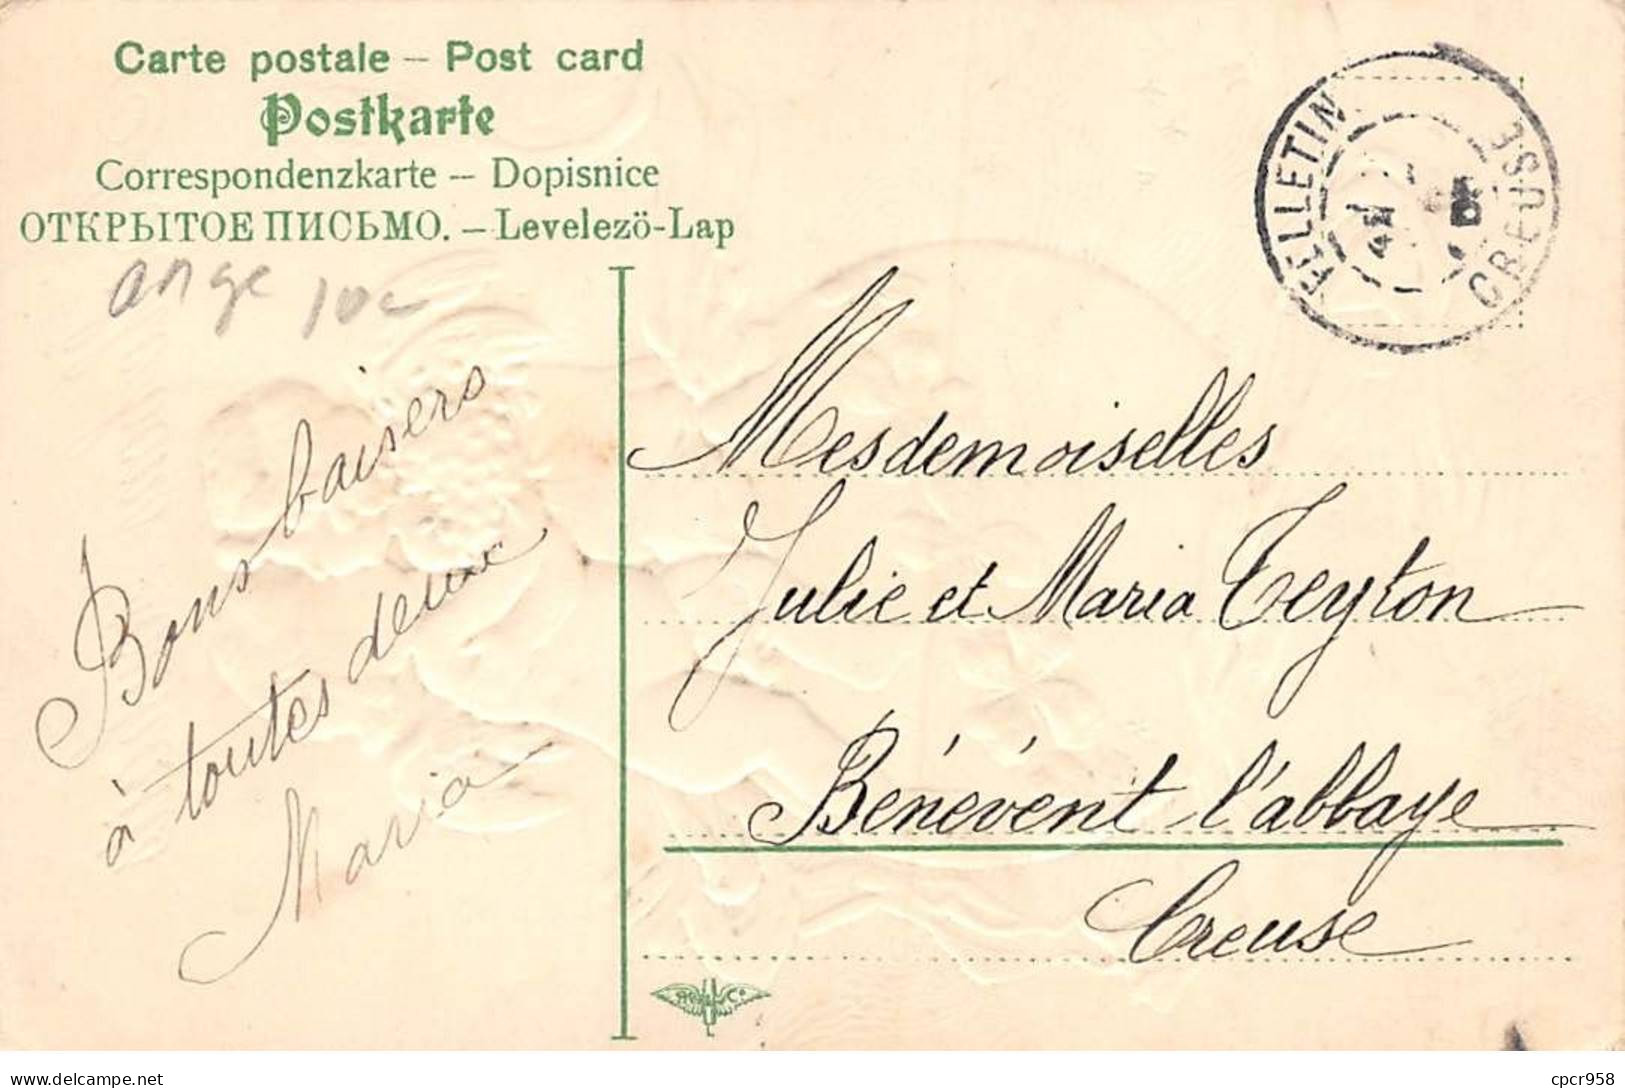 Carte postale – Post card
Postkarte
Correspondenzkarte – Dopisnice
ОТКРЫТОЕ ПИСЬМО. – Levelezö-Lap
ange 10
FELLETIN
CREUSE
Bons baisers
à toutes deux
Maria
Mesdemoiselles
Julie et Maria Teyton
Bénévent l'abbaye
Creuse
delcampe.net
cpcr958